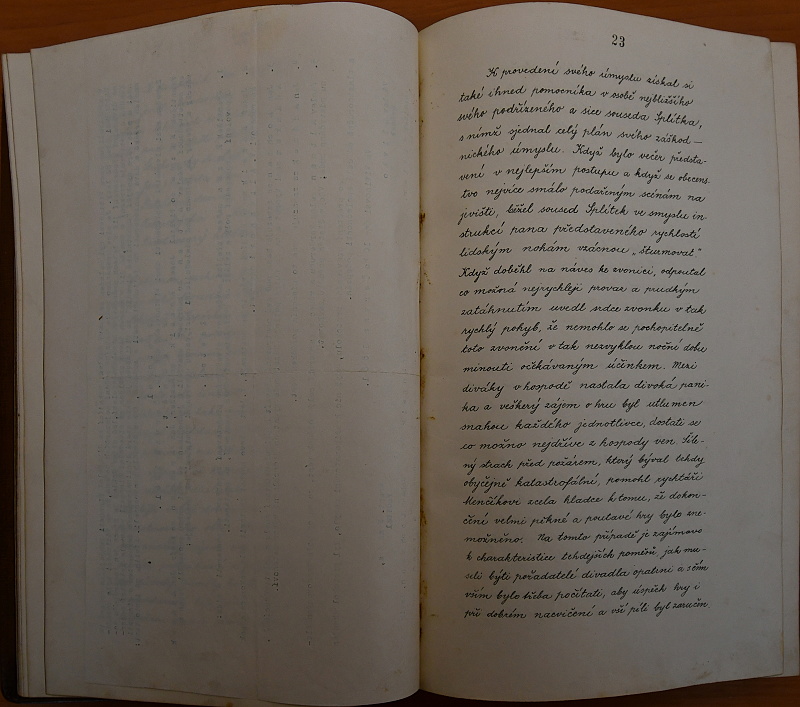 23
K provedení svého úmyslu získal si
také ihned pomocníka v osobě nejbližšího
svého podřízeného a sice souseda Splítka,
s nímž sjednal celý plán svého záškod-
nického úmyslu. Když bylo večer předsta-
vení v nejlepším postupu a když se obecens-
tvo nejvíce smálo podařeným scénám na
jevišti, běžel soused Splítek ve smyslu in-
strukcí pana představeného rychlostí
lidským nohám vzácnou „šturmovat"
Když doběhl na náves ke zvonici, odpoutal
co možná nejrychleji provaz a prudkým
zatáhnutím uvedl srdce zvonku v tak
rychlý pohyb, že nemohlo se pochopitelně
toto zvonění v tak nezvyklou noční dobu
minouti očekávaným účinkem. Mezi
diváky v hospodě nastala divoká pani-
ka a veškerý zájem o hru byl utlumen
snahou každého jednotlivce, dostati se
co možno nejdříve z hospody ven. Šíle-
ný strach před požárem, který býval tehdy
obyčejně katastrofální, pomohl rychtáři
Menčíkovi zcela hladce k tomu, že dokon-
čení velmi pěkné a poutavé hry bylo zne-
možněno. Na tomto případě je zajímavo
k charakteristice tehdejších poměrů, jak mu-
seli býti pořadatelé divadla opatrní a s čím
vším bylo třeba počítati, aby úspěch hry i
při dobrém nacvičení a vší píli byl zaručen.